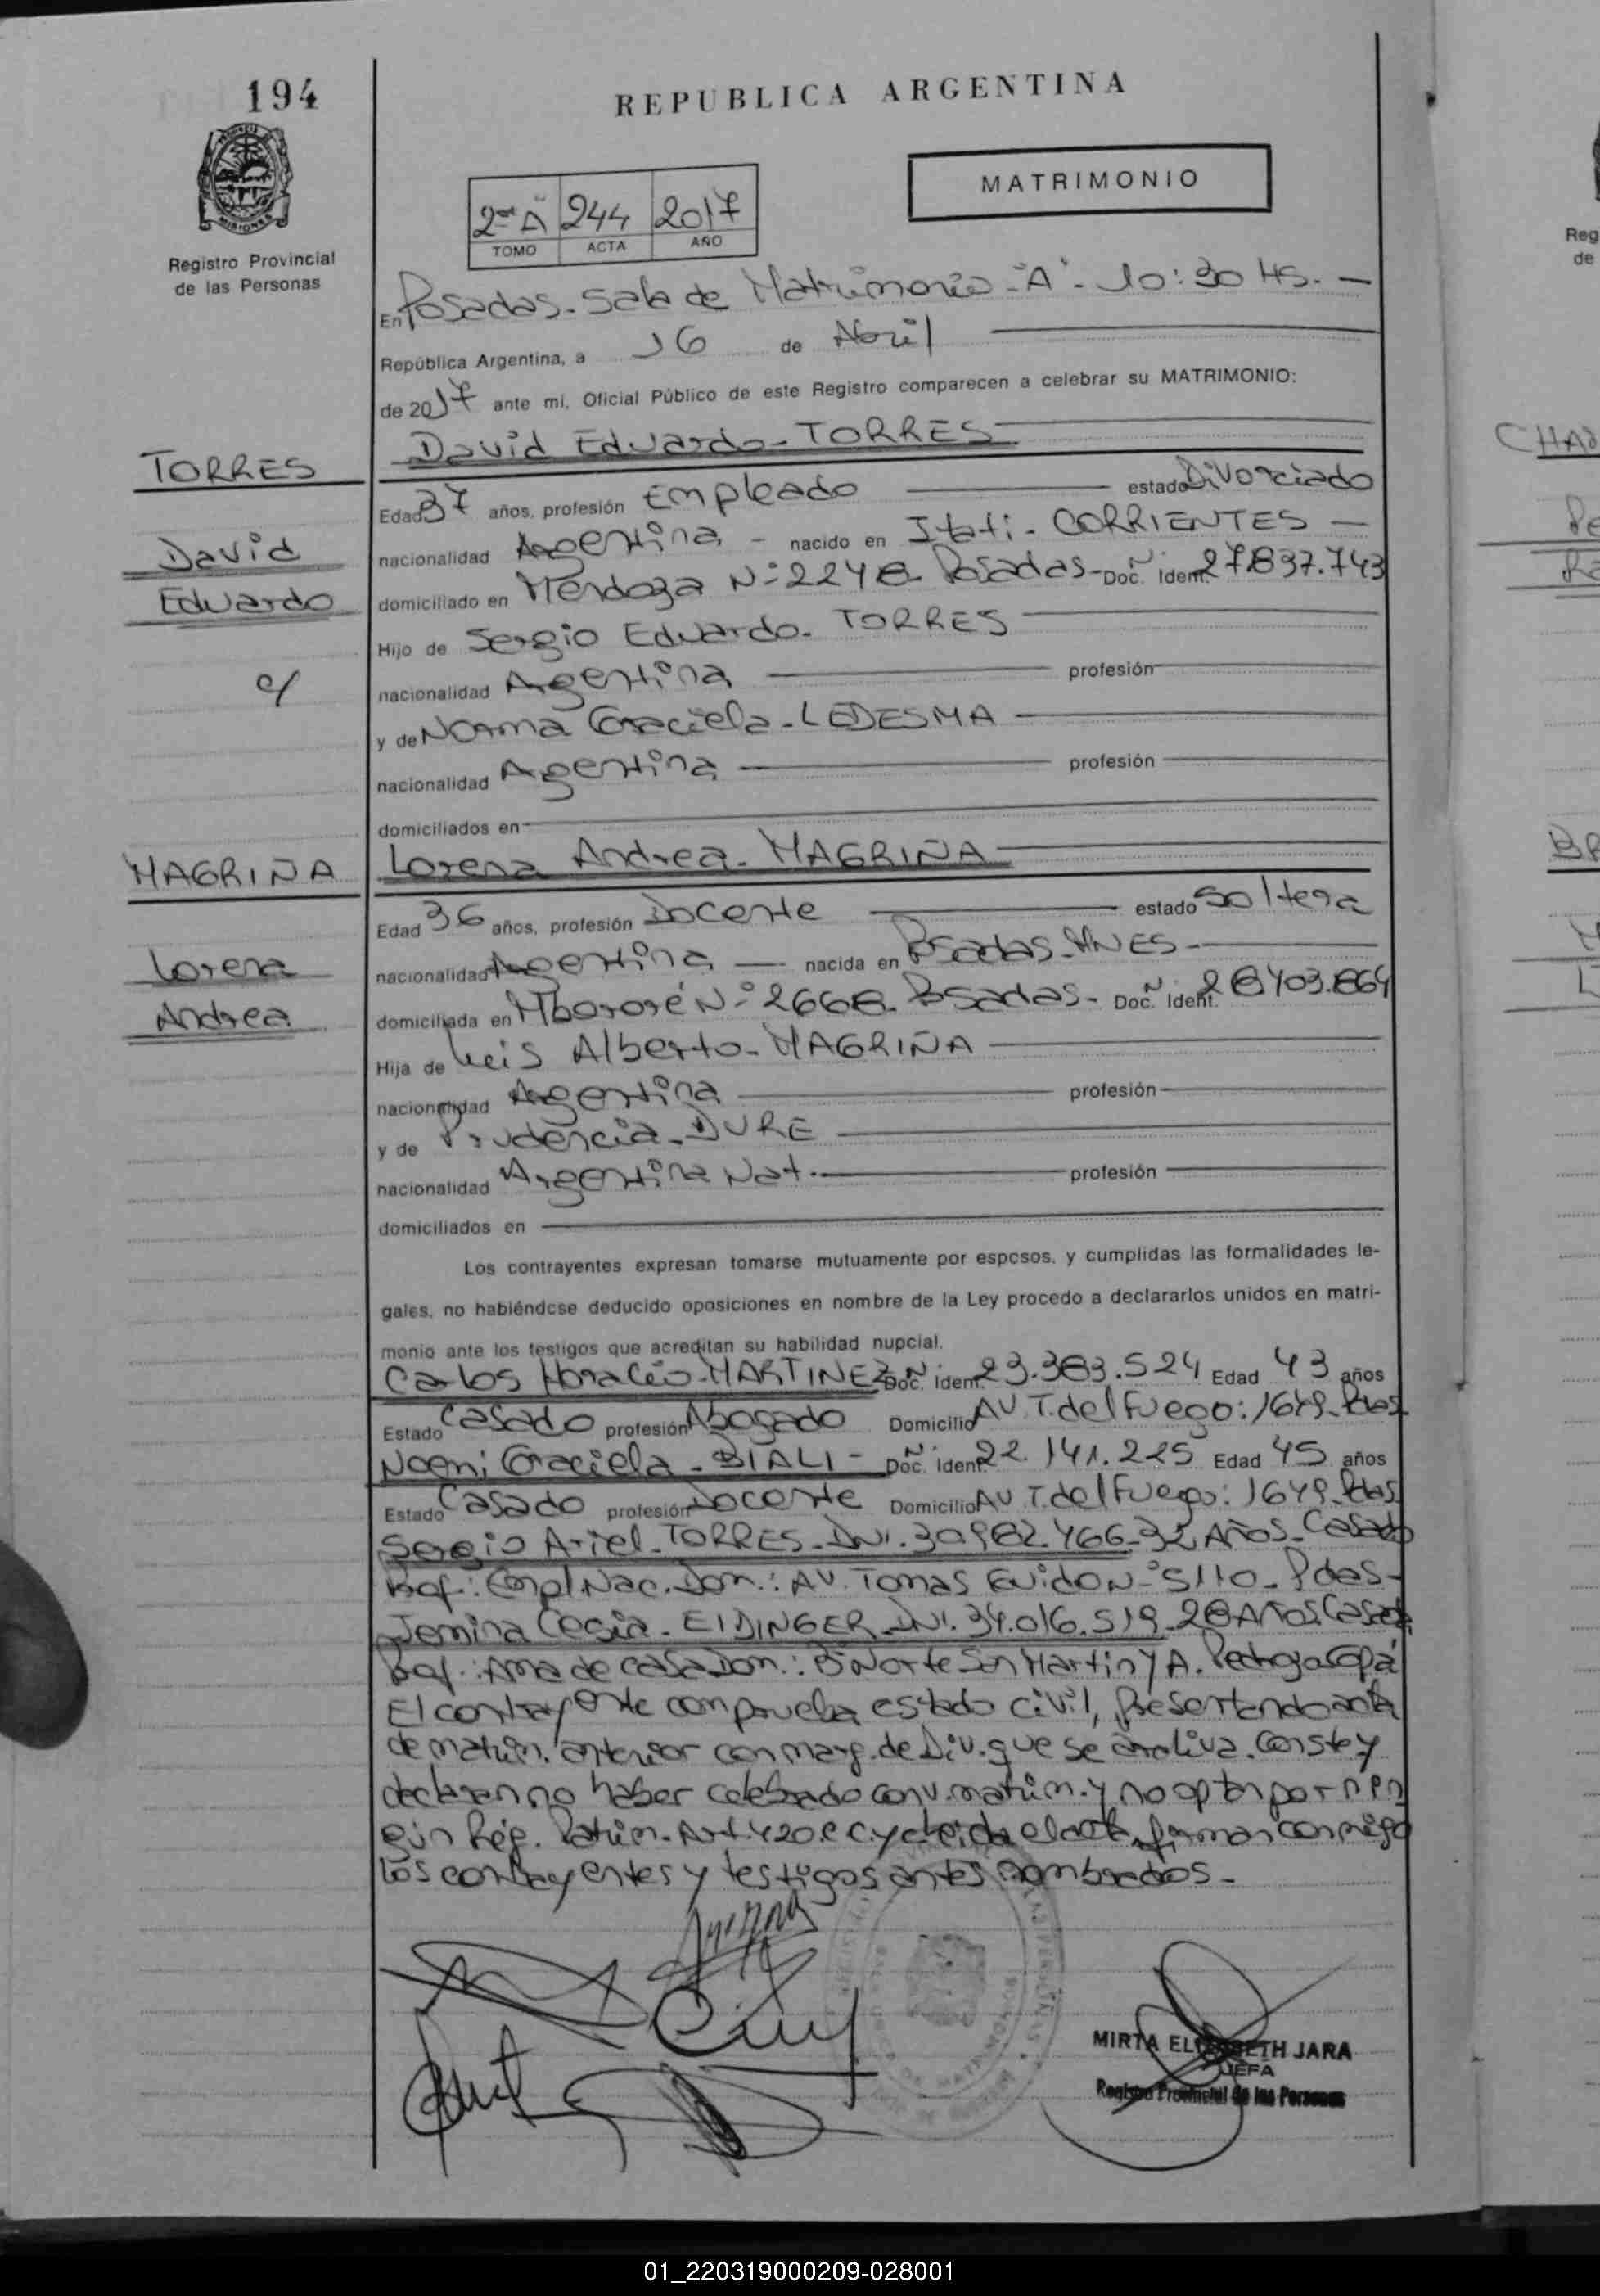 194
REPUBLICA ARGENTINA
MATRIMONIO
2da "A" 244 2017
TOMO ACTA AÑO
Registro Provincial
de las Personas
En Posadas - Sala de Matrimonio - "A" - 10:30 Hs. -
República Argentina, a 16 de Abril
de 2017 ante mi, Oficial Público de este Registro comparecen a celebrar su MATRIMONIO:
David Eduardo - TORRES
TORRES
David
Eduardo
c/
Edad 37 años, profesión Empleado estado Divorciado
nacionalidad Argentina - nacido en Itati - CORRIENTES -
domiciliado en Mendoza Nº 2248 - Posadas - Doc. Ident. Nº 27.837.743
Hijo de Sergio Eduardo - TORRES
nacionalidad Argentina profesión
y de Norma Graciela - LEDESMA
nacionalidad Argentina profesión
domiciliados en
Lorena Andrea - MAGRIÑA
MAGRIÑA
Lorena
Andrea
Edad 36 años, profesión Docente estado Soltera
nacionalidad Argentina - nacida en Posadas - MNES -
domiciliada en Mbororé Nº 2668 - Posadas - Doc. Ident. Nº 28.403.864
Hija de Luis Alberto - MAGRIÑA
nacionalidad Argentina profesión
y de Prudencia - DURE
nacionalidad Argentina Nat. profesión
domiciliados en
Los contrayentes expresan tomarse mutuamente por esposos, y cumplidas las formalidades le-
gales, no habiéndose deducido oposiciones en nombre de la Ley procedo a declararlos unidos en matri-
monio ante los testigos que acreditan su habilidad nupcial.
Carlos Horacio - MARTINEZ Doc. Ident. Nº 23.383.524 Edad 43 años
Estado Casado profesión Abogado Domicilio AV. T. del Fuego: 1649 - Pdas
Noemi Graciela - BIALI - Doc. Ident. Nº 22.141.225 Edad 45 años
Estado Casado profesión Docente Domicilio AV. T. del Fuego: 1649 - Pdas
Sergio Ariel - TORRES - DNI. 30.982.466 - 32 Años - Casado
Prof.: Empl. Nac. Dom.: AV. Tomas Guido Nº 5110 - Pdas -
Jemina Cesia - EIDINGER - DNI. 34.016.519 - 28 Años Casada
Prof.: Ama de casa Dom.: Bº Norte San Martin y A. Pedroza
El contrayente comprueba estado civil, presentando acta
de matrim. anterior con marg. de Div. que se archiva. Conste y
declaran no haber celebrado conv. matrim. y no optan por nin
gún Rég. Patrim. Art. 420 C.C. y leida el acta, firman conmigo
los contrayentes y testigos antes nombrados -
MIRTA ELIZABETH JARA
JEFA
Registro Provincial de las Personas
01_220319000209-028001